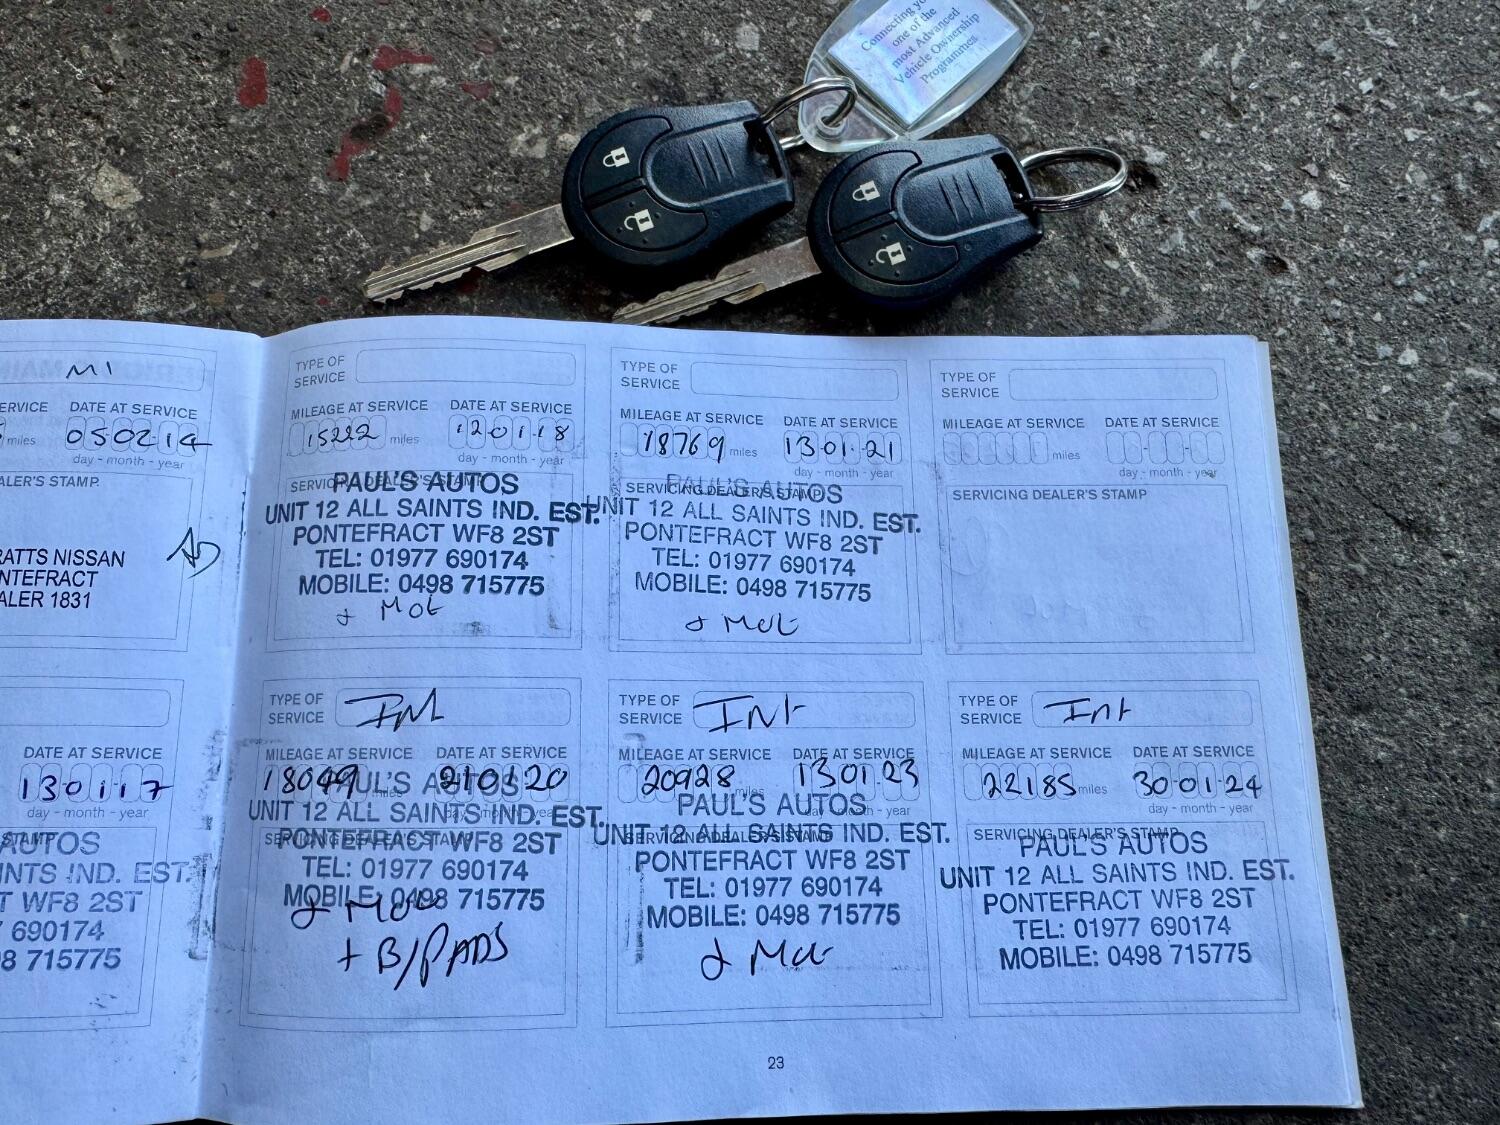 Connecting
one of the
most Advanced
Vehicle Ownership
Programmes
MI
SERVICE
DATE AT SERVICE
miles
05-02-14
day - month - year
ALER'S STAMP.
RATTS NISSAN
NTEFRACT
ALER 1831
DATE AT SERVICE
13 01 17
day - month - year
STAMP
AUTOS
INTS IND. EST.
T WF8 2ST
7 690174
98 715775
TYPE OF
SERVICE
MILEAGE AT SERVICE
DATE AT SERVICE
15222 miles
12-01-18
day - month - year
SERVICING DEALER'S STAMP
PAUL'S AUTOS
UNIT 12 ALL SAINTS IND. EST.
PONTEFRACT WF8 2ST
TEL: 01977 690174
MOBILE: 0498 715775
& MOt
TYPE OF
SERVICE
MILEAGE AT SERVICE
DATE AT SERVICE
18769 miles
13-01-21
day - month - year
SERVICING DEALER'S STAMP
PAUL'S AUTOS
UNIT 12 ALL SAINTS IND. EST.
PONTEFRACT WF8 2ST
TEL: 01977 690174
MOBILE: 0498 715775
& MOt
TYPE OF
SERVICE
MILEAGE AT SERVICE
DATE AT SERVICE
miles
day - month - year
SERVICING DEALER'S STAMP
TYPE OF
SERVICE
Int
MILEAGE AT SERVICE
DATE AT SERVICE
18049 miles
21 01 20
day - month - year
SERVICING DEALER'S STAMP
PAUL'S AUTOS
UNIT 12 ALL SAINTS IND. EST.
PONTEFRACT WF8 2ST
TEL: 01977 690174
MOBILE: 0498 715775
& MOt
+ B/PADS
TYPE OF
SERVICE
Int
MILEAGE AT SERVICE
DATE AT SERVICE
20928 miles
13 01 23
day - month - year
SERVICING DEALER'S STAMP
PAUL'S AUTOS
UNIT 12 ALL SAINTS IND. EST.
PONTEFRACT WF8 2ST
TEL: 01977 690174
MOBILE: 0498 715775
& MOt
TYPE OF
SERVICE
Int
MILEAGE AT SERVICE
DATE AT SERVICE
22185 miles
30-01-24
day - month - year
SERVICING DEALER'S STAMP
PAUL'S AUTOS
UNIT 12 ALL SAINTS IND. EST.
PONTEFRACT WF8 2ST
TEL: 01977 690174
MOBILE: 0498 715775
23